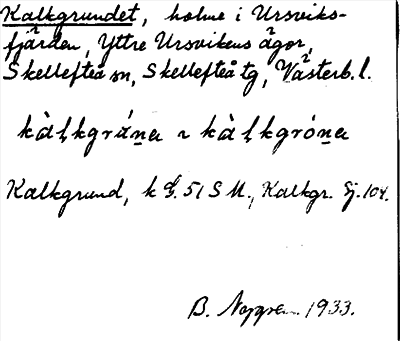 Kalkgrundet, holme i Ursviks-
fjärden, Yttre Ursvikens ägor,
Skellefteå sn, Skellefteå tg, Västerb. l.
Kalkgrund, k 51 S U., Kalkgr. Sj. 104.
B. Nygren 1933.